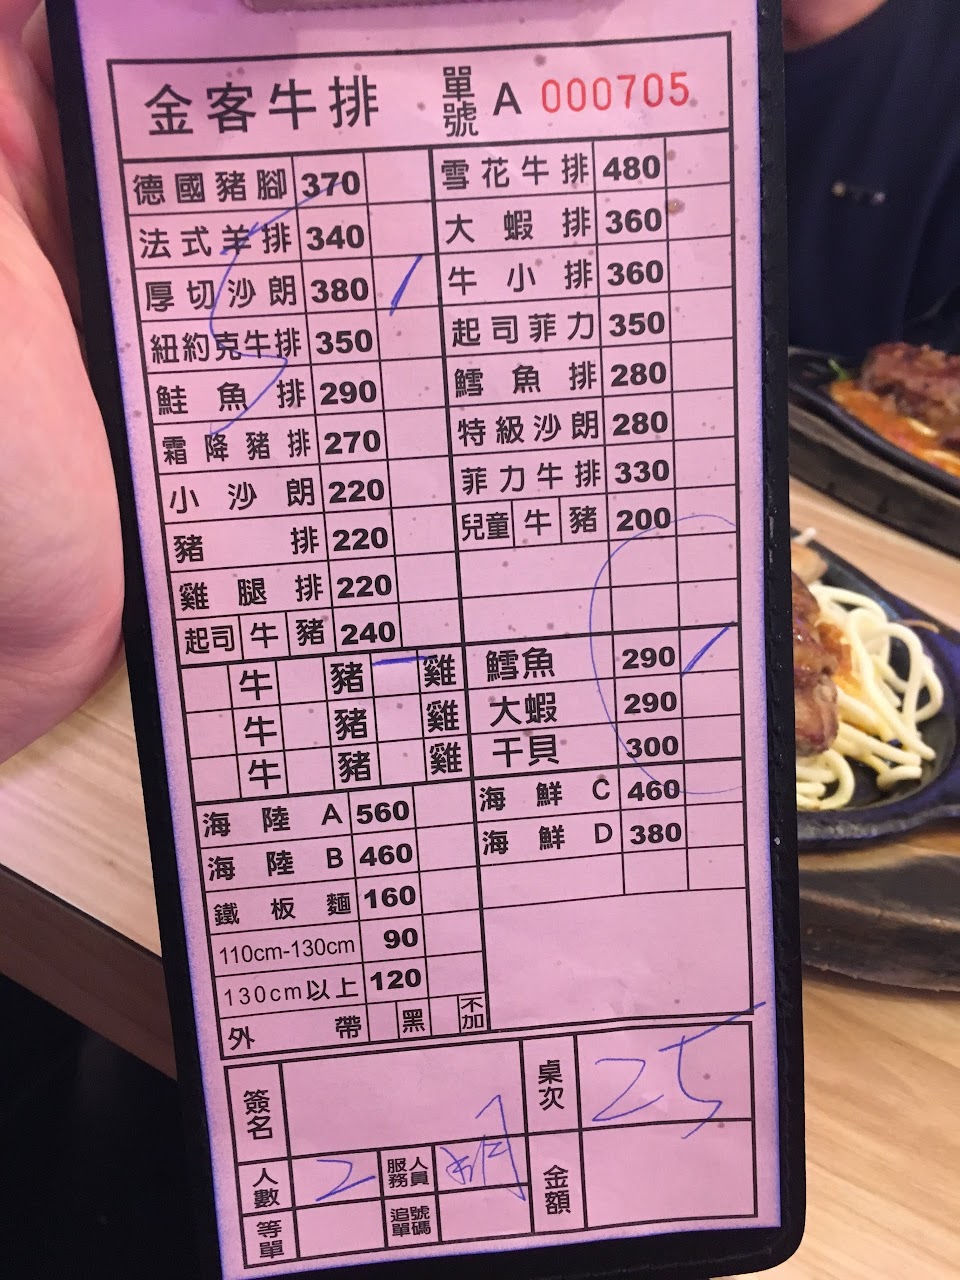 金客牛排 單號 A 000705
德國豬腳 370 雪花牛排 480
法式羊排 340 大蝦排 360
厚切沙朗 380 / 牛小排 360
紐約克牛排 350 起司菲力 350
鮭魚排 290 鱈魚排 280
霜降豬排 270 特級沙朗 280
小沙朗 220 菲力牛排 330
豬排 220 兒童 牛 豬 200
雞腿排 220
起司 牛 豬 240
牛 豬 一 雞 鱈魚 290 /
牛 豬 雞 大蝦 290
牛 豬 雞 干貝 300
海陸A 560 海鮮C 460
海陸B 460 海鮮D 380
鐵板麵 160
110cm-130cm 90
130cm以上 120
外帶 黑 不加
簽名 桌次 25
人數 2 服務人員 金額
等單 追單號碼